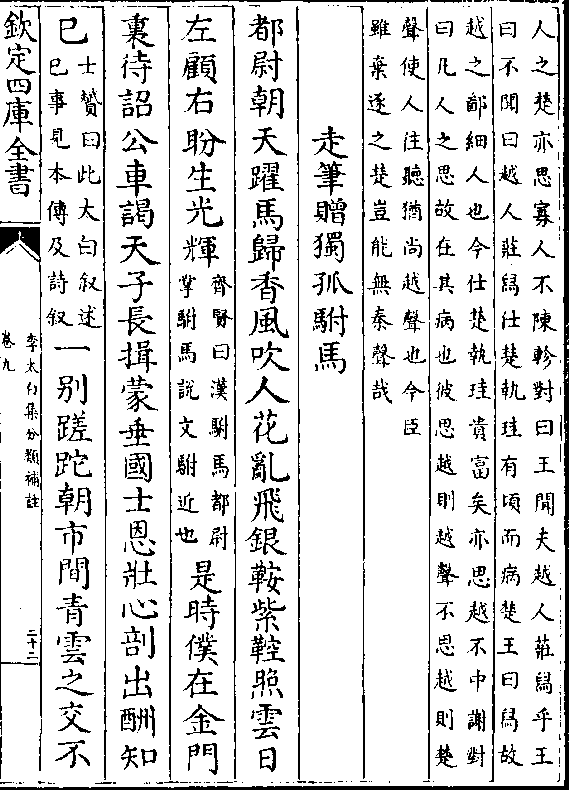 人之楚亦思寡人不陳軫對曰王聞夫越人莊舄乎王
曰不聞曰越人莊舄仕楚執珪有頃而病楚王曰舄故
越之鄙細人也今仕楚執珪貴富矣亦思越不中謝對
曰凡人之思故在其病也彼思越則越聲不思越則楚
聲使人往聽猶尚越聲也今臣
雖棄逐之楚豈能無秦聲哉
走筆贈獨孤駙馬
都尉朝天躍馬歸香風吹人花亂飛銀鞍紫鞚照雲日
左顧右盼生光輝
齊賢曰漢駙馬都尉
掌駙馬說文駙近也
是時僕在金門
裏待詔公車謁天子長揖蒙垂國士恩壯心剖出酬知
已
士贇曰此太白叙述
已事見本傳及詩叙
一別蹉跎朝市間青雲之交不
欽定四庫全書
李太白集分類補註
卷九
二十二